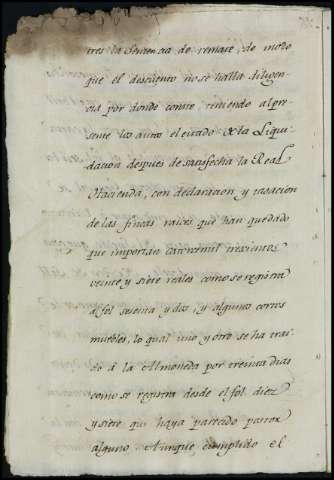 tres la Sentencia de remate, de modo
que el descuento no se halla diligen
cia por donde conste, teniendo al pre
sente los autos el estado de la Liqui
dacion despues de satisfecha la Real
Hacienda, con declaracion y tasación
de las fincas raices que han quedado
que importan catorcemil trecientos
veinte y siete reales como se registra
á fol sesenta y dos, y algunos cortos
muebles, lo qual uno y otro se ha trai
do á la Almoneda por treinta dias
como se registra desde el fol. diez
y siete que haya parecido postor
alguno Aunque cumplido el